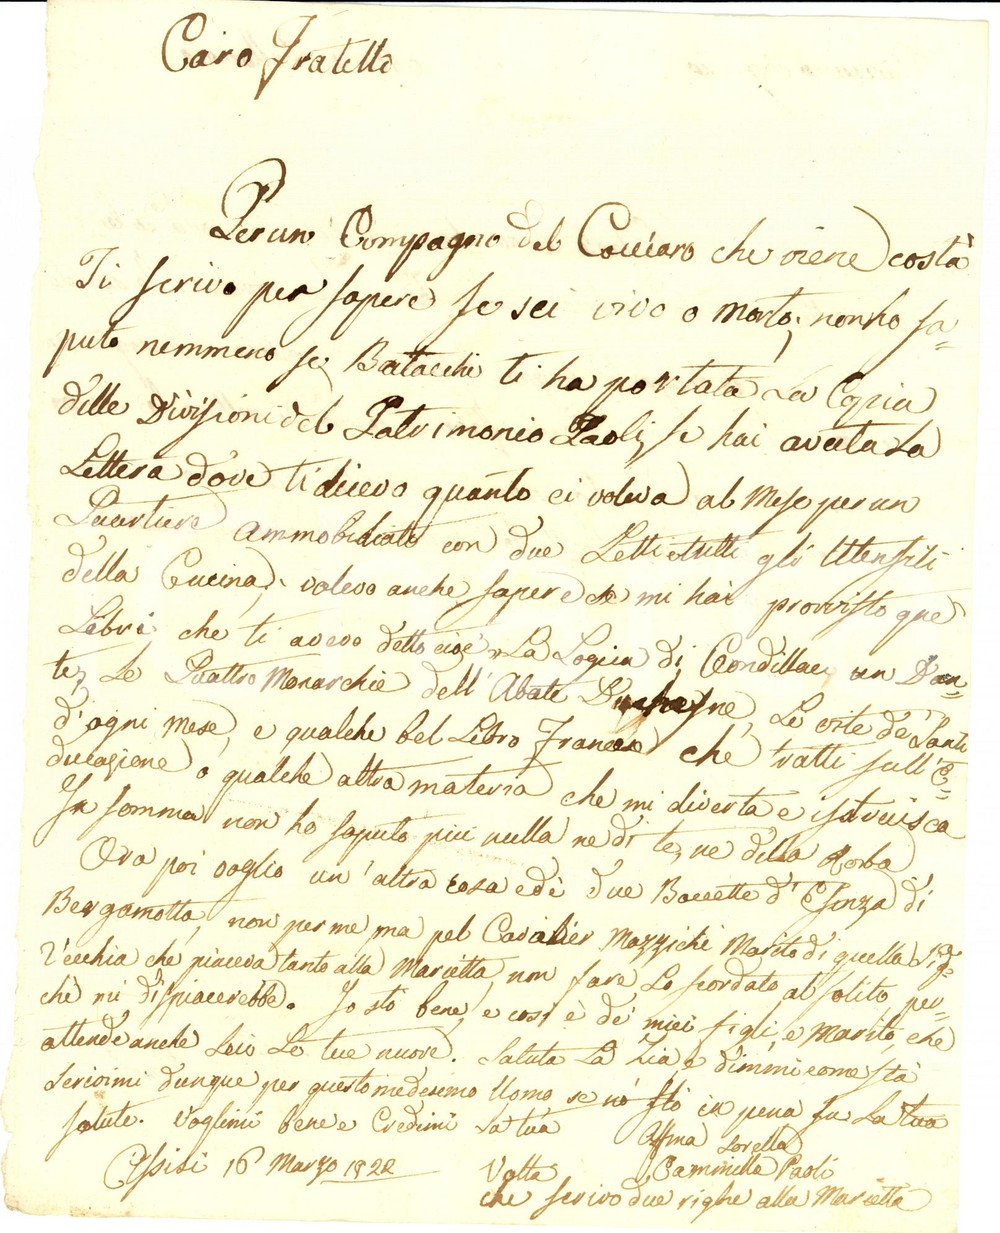 Caro Fratello
Per un Compagno del Cocciaro che viene costà
Ti scrivo per sapere se sei vivo o morto; non ho sa=
puto nemmeno se Batacchi ti ha portata la Copia
delle Divisioni del Patrimonio Paoli, se hai avuta la
Lettera dove ti dicevo quanto ci voleva al Mese per un
Quartiere Ammobiliato con due Letti e tutti gli Utensili
della Cucina; volevo anche sapere se mi hai provvisto que
Libri che ti avevo detto cioè La Logica di Condillac, un Dan=
te, Le Quattro Monarchie dell'Abate, Le vite de' Santi
d'ogni Mese, e qualche bel Libro Francese che tratti sull'E=
ducazione o qualche altra materia che mi diverta e istruisca
In somma non ho saputo più nulla ne di te, ne della Roba
Ora poi voglio un'altra cosa ed è due Boccette d'Essenza di
Bergamotta, non per me ma pel Cavalier Mazzichi Marito di quella Sig.
Vecchia che piaceva tanto alla Marietta, non fare lo scordato al solito, per=
chè mi dispiacerebbe. Io stò bene, e così è de' miei figli, e Marito, che
attende anche Lui le tue nuove. Saluta La Zia, e dimmi come stà
Scrivimi dunque per questo medesimo Uomo se nò stò in pena su La tua
salute. Voglimi bene e Credimi La tua
Affma Sorella
Assisi 16 Marzo 1822
Cammilla Paoli
Volta
che scrivo due righe alla Marietta